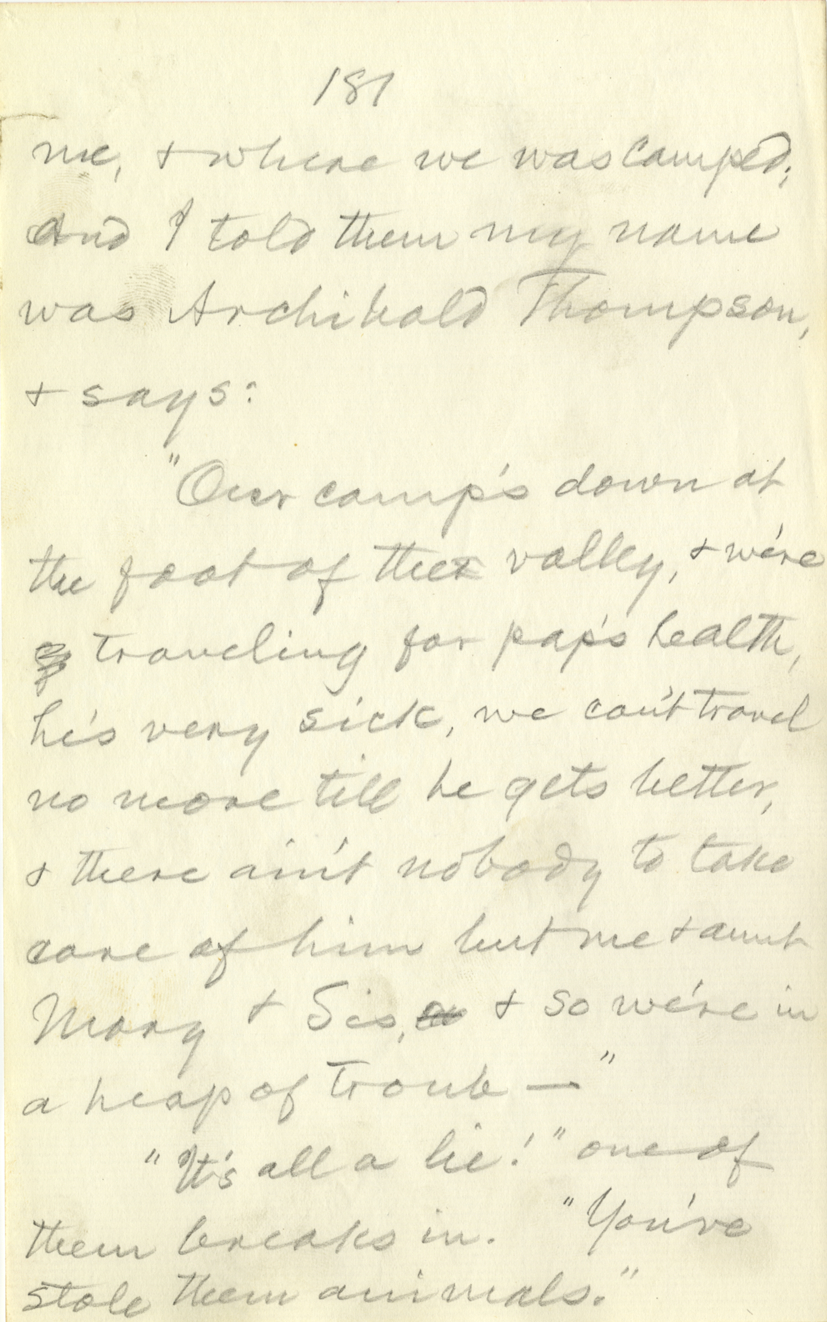 181
me, & where we was camped;
And I told them my name
was Archibald Thompson,
& says:
"Our camp's down at
the foot of the valley, & we're
traveling for pap's health,
he's very sick, we can't travel
no more till he gets better,
& there ain't nobody to take
care of him but me & aunt
Mary & Sis, & so we're in
a heap of troub —"
"It's all a lie!" one of
them breaks in. "You've
stole them animals."